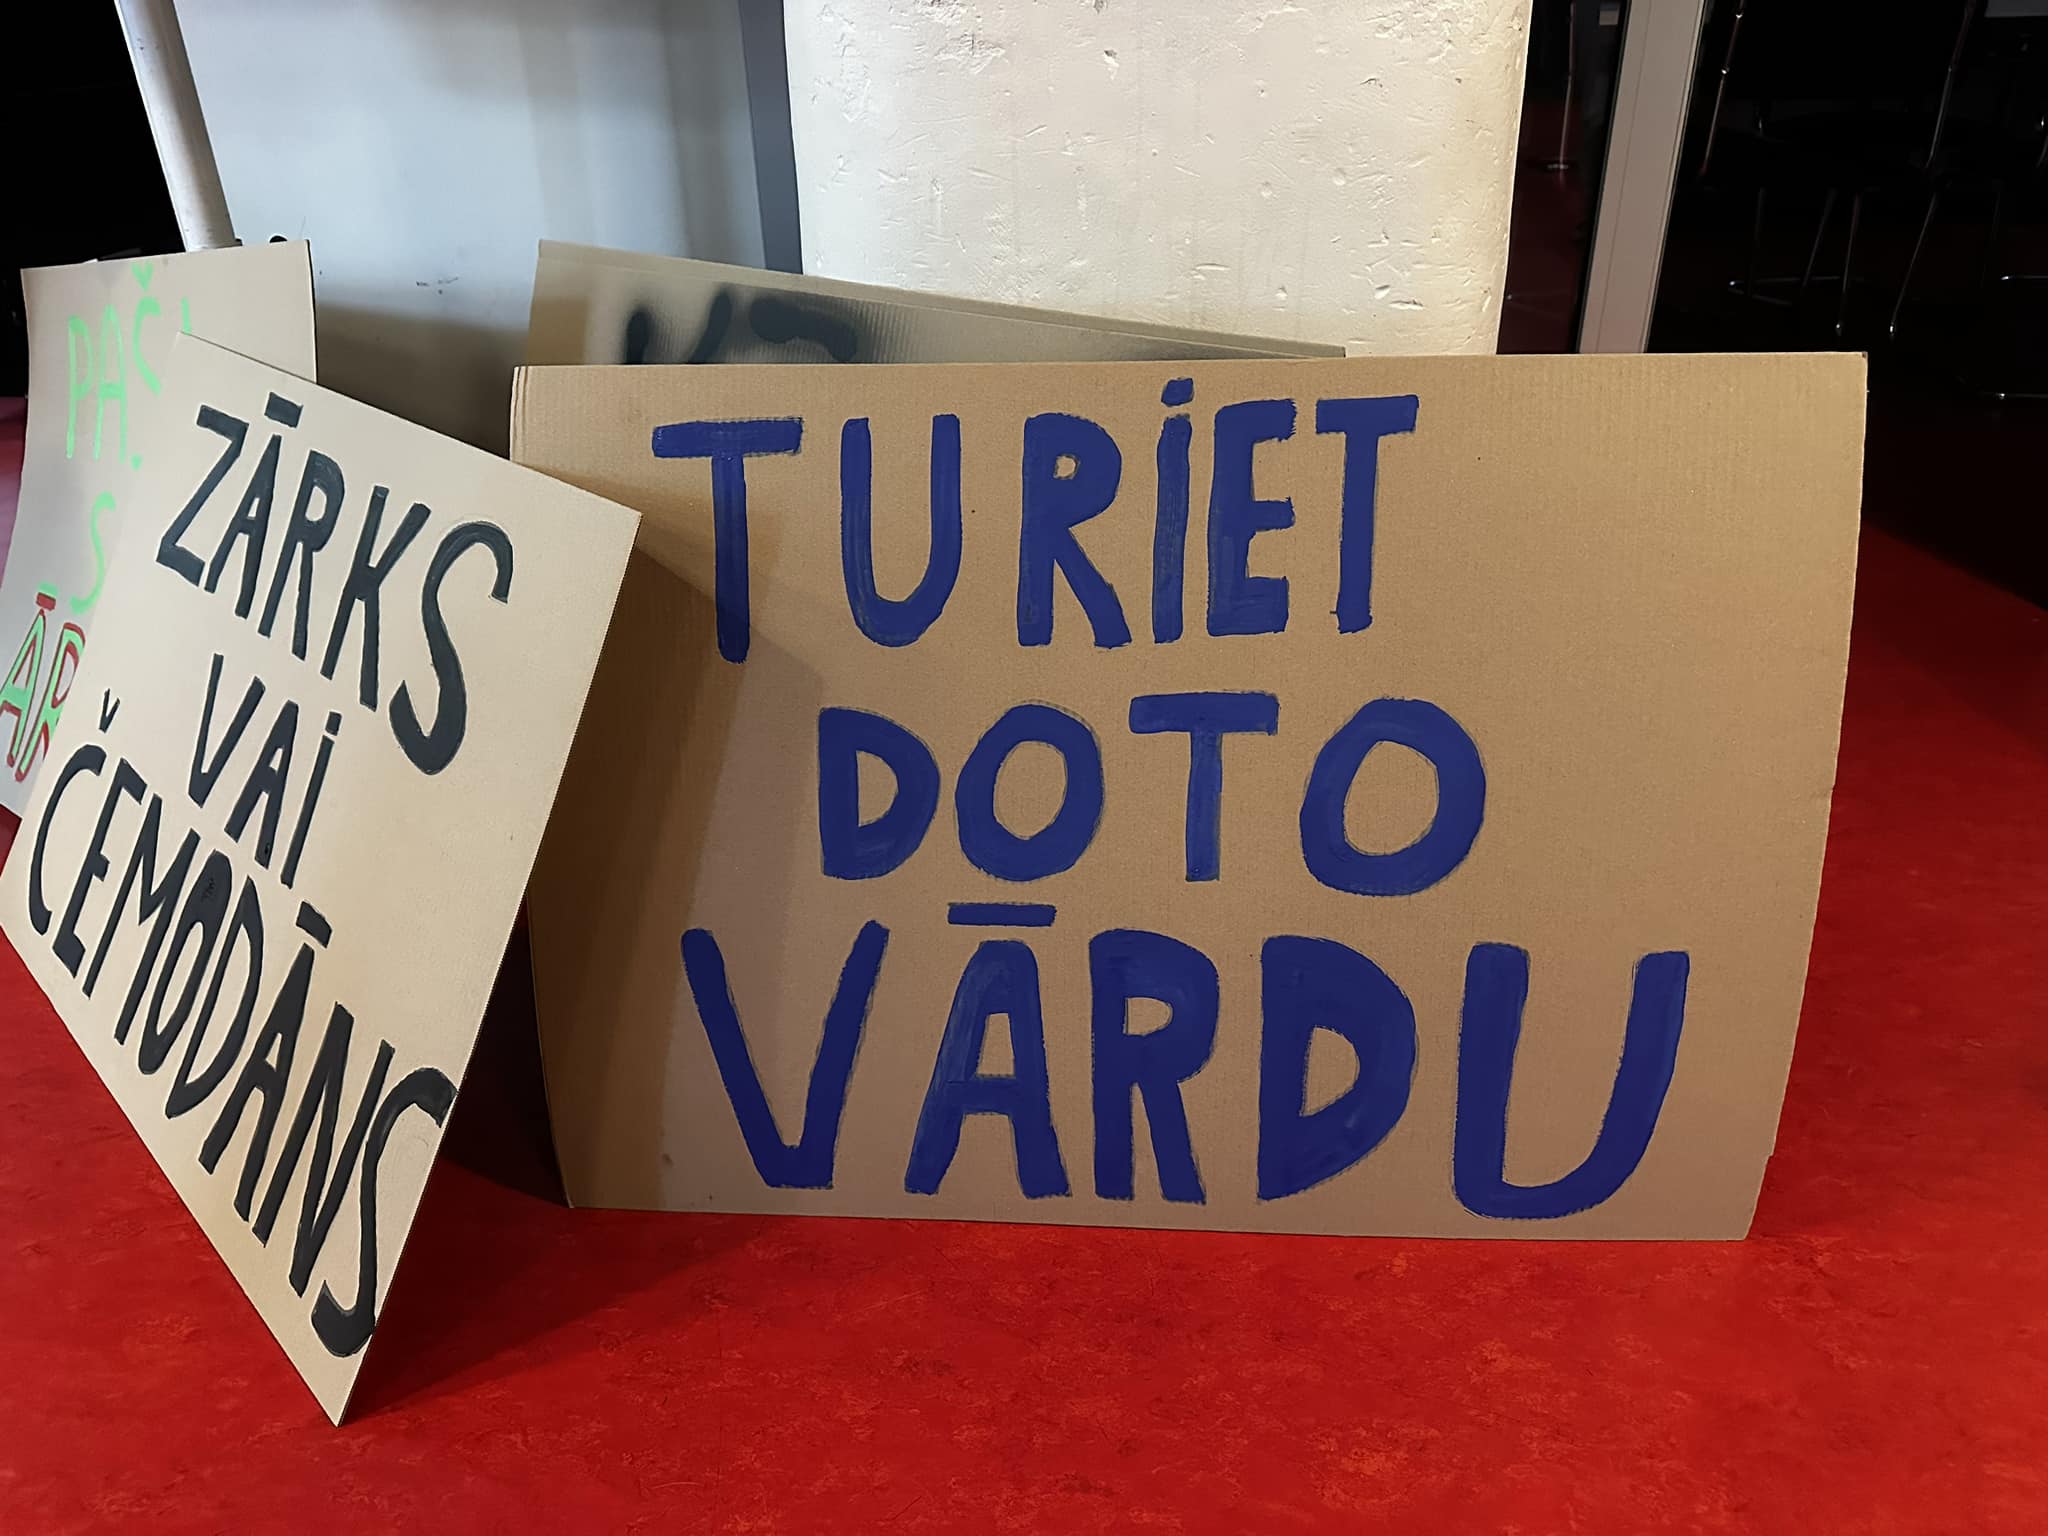 ZĀRKS
VAI
ČEMODĀNS
TURIET
DOTO
VĀRDU